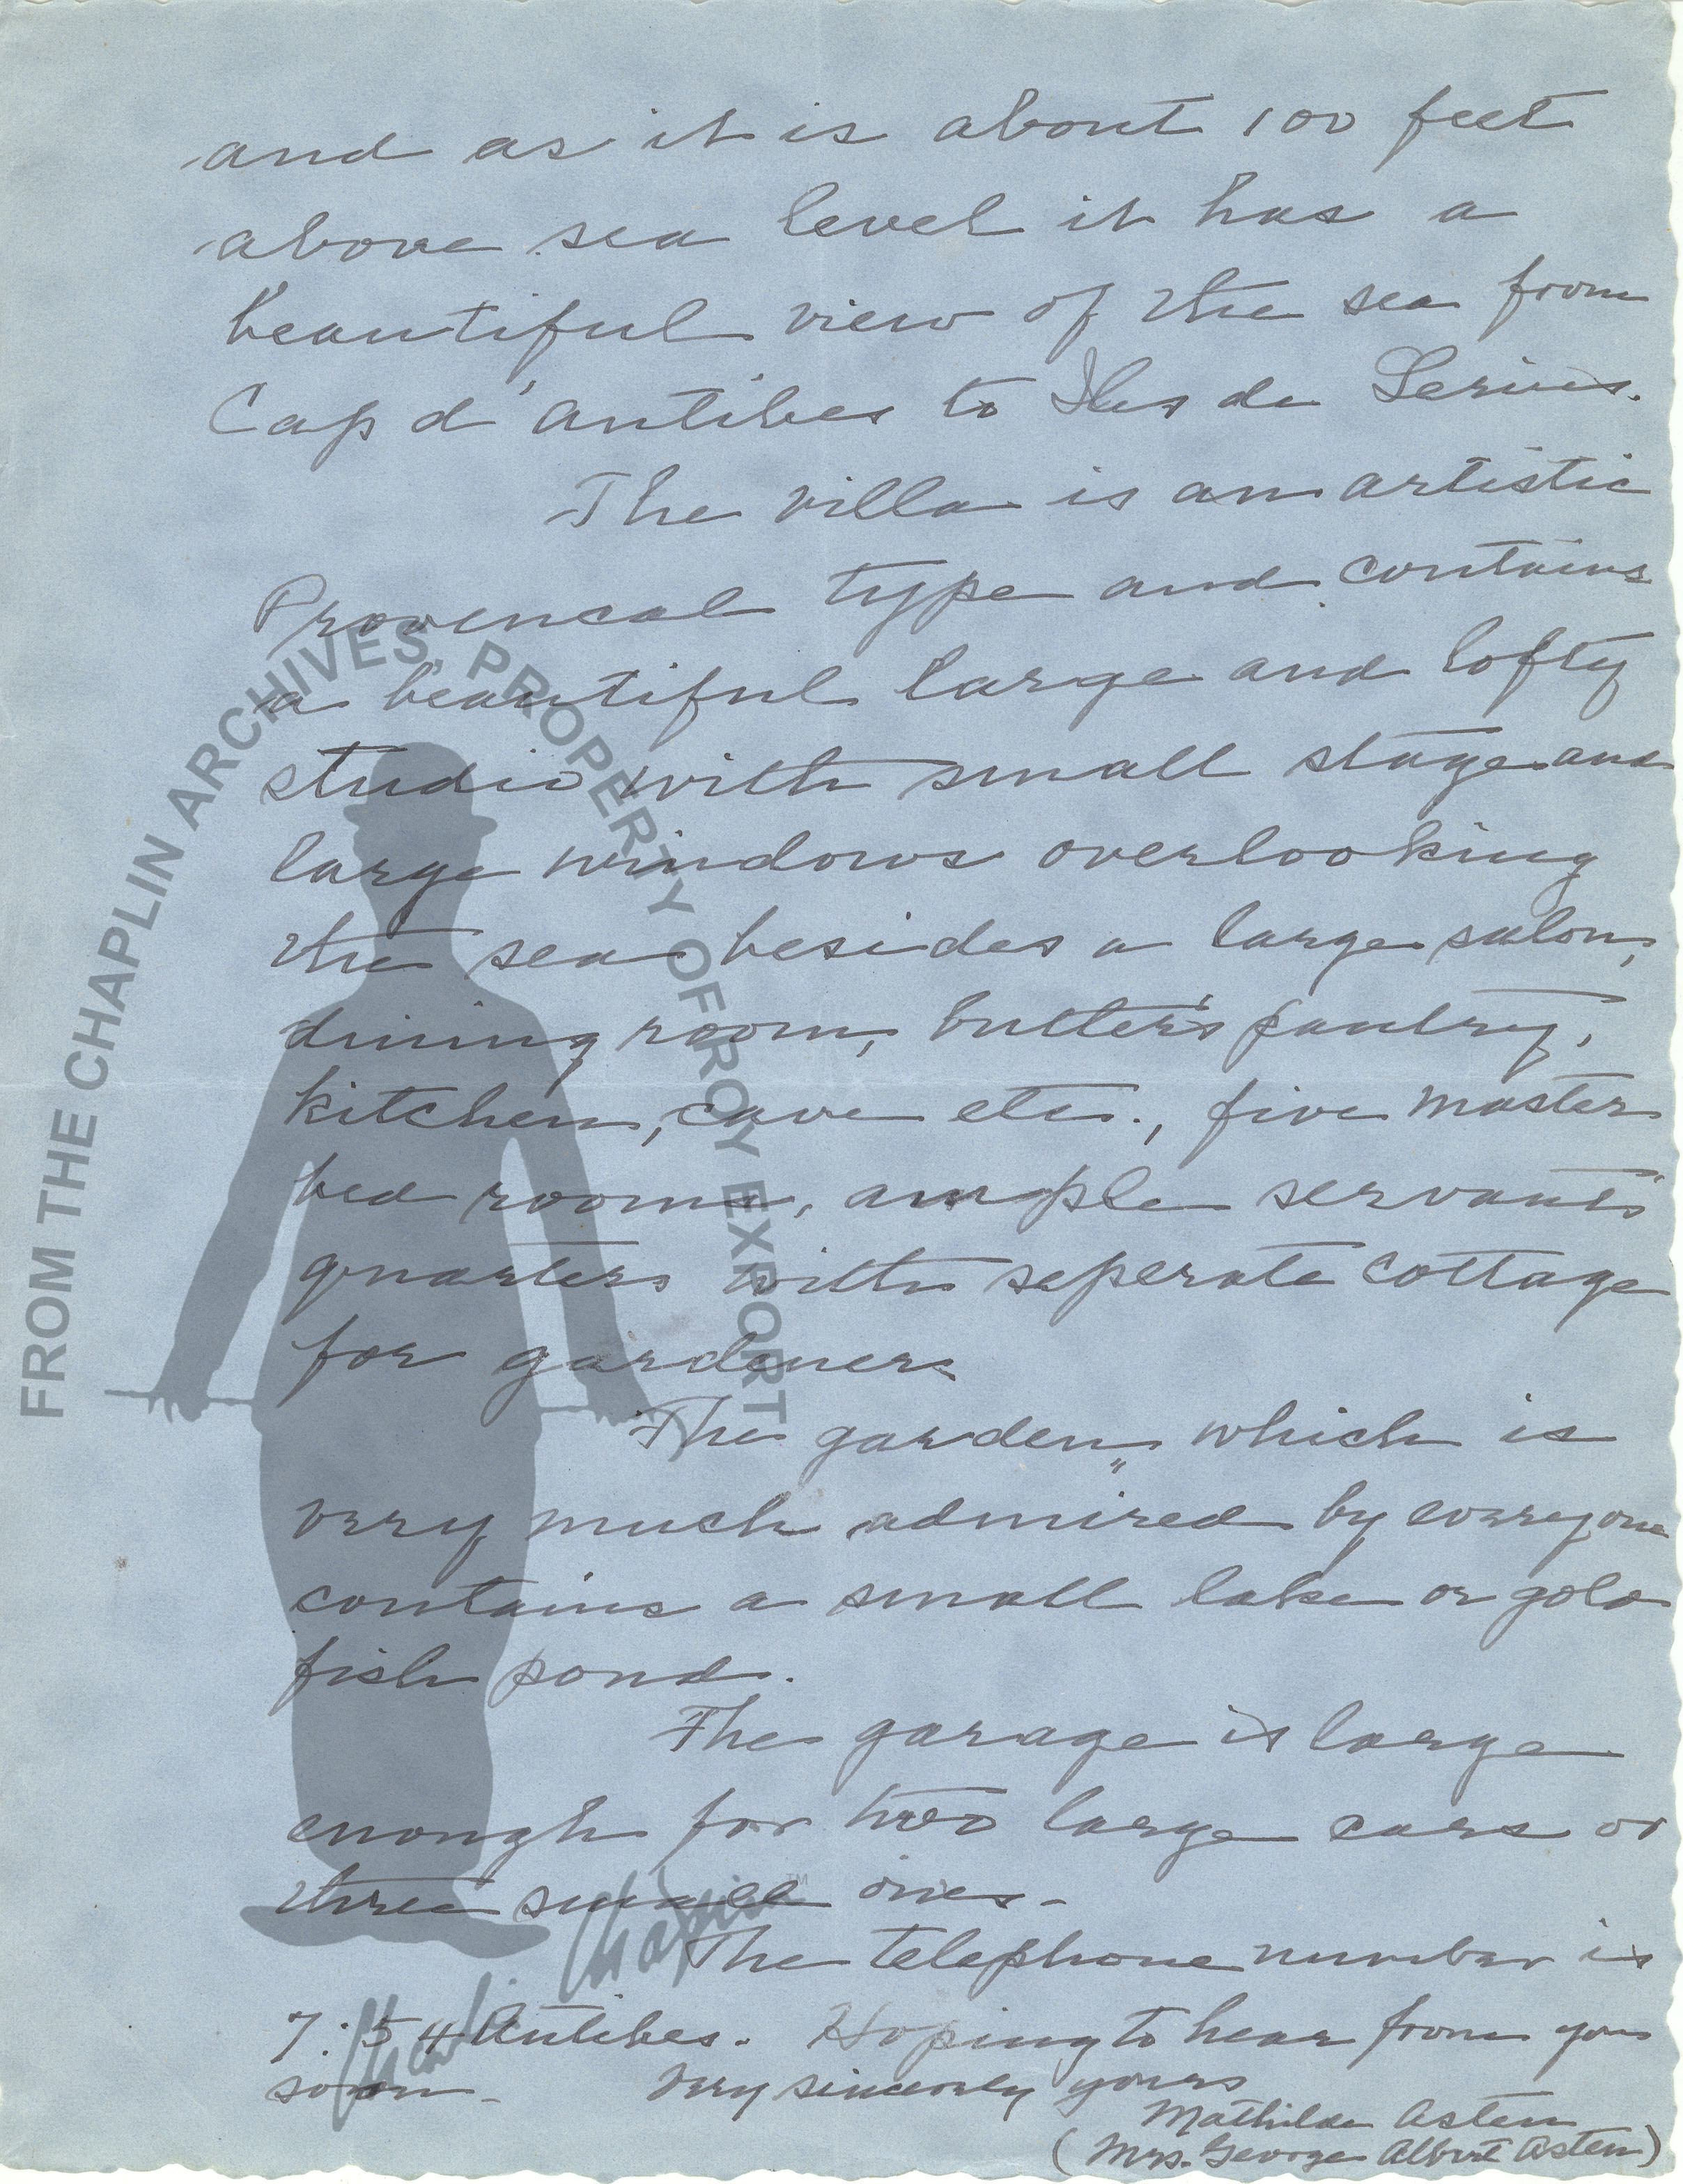 and as it is about 100 feet
above sea level it has a
beautiful view of the sea from
Cap d'antibes to Iles de Lerins.
The villa is an artistic
Provencal type and contains
a beautiful large and lofty
studio with small stage and
large windows overlooking
the sea besides a large salon,
dining room, butler's pantry,
kitchen, cave etc., five master
bed rooms, ample servants'
quarters with seperate cottage
for gardener.
The garden, which is
very much admired by everyone
contains a small lake or gold
fish pond.
The garage is large
enough for two large cars or
three small ones.
The telephone number is
7:54 Antibes. Hoping to hear from you
soon. Very sincerely yours
Mathilde Asten
(Mrs. George Albert Asten)
FROM THE CHAPLIN ARCHIVES, PROPERTY OF ROY EXPORT
Charlie Chaplin™